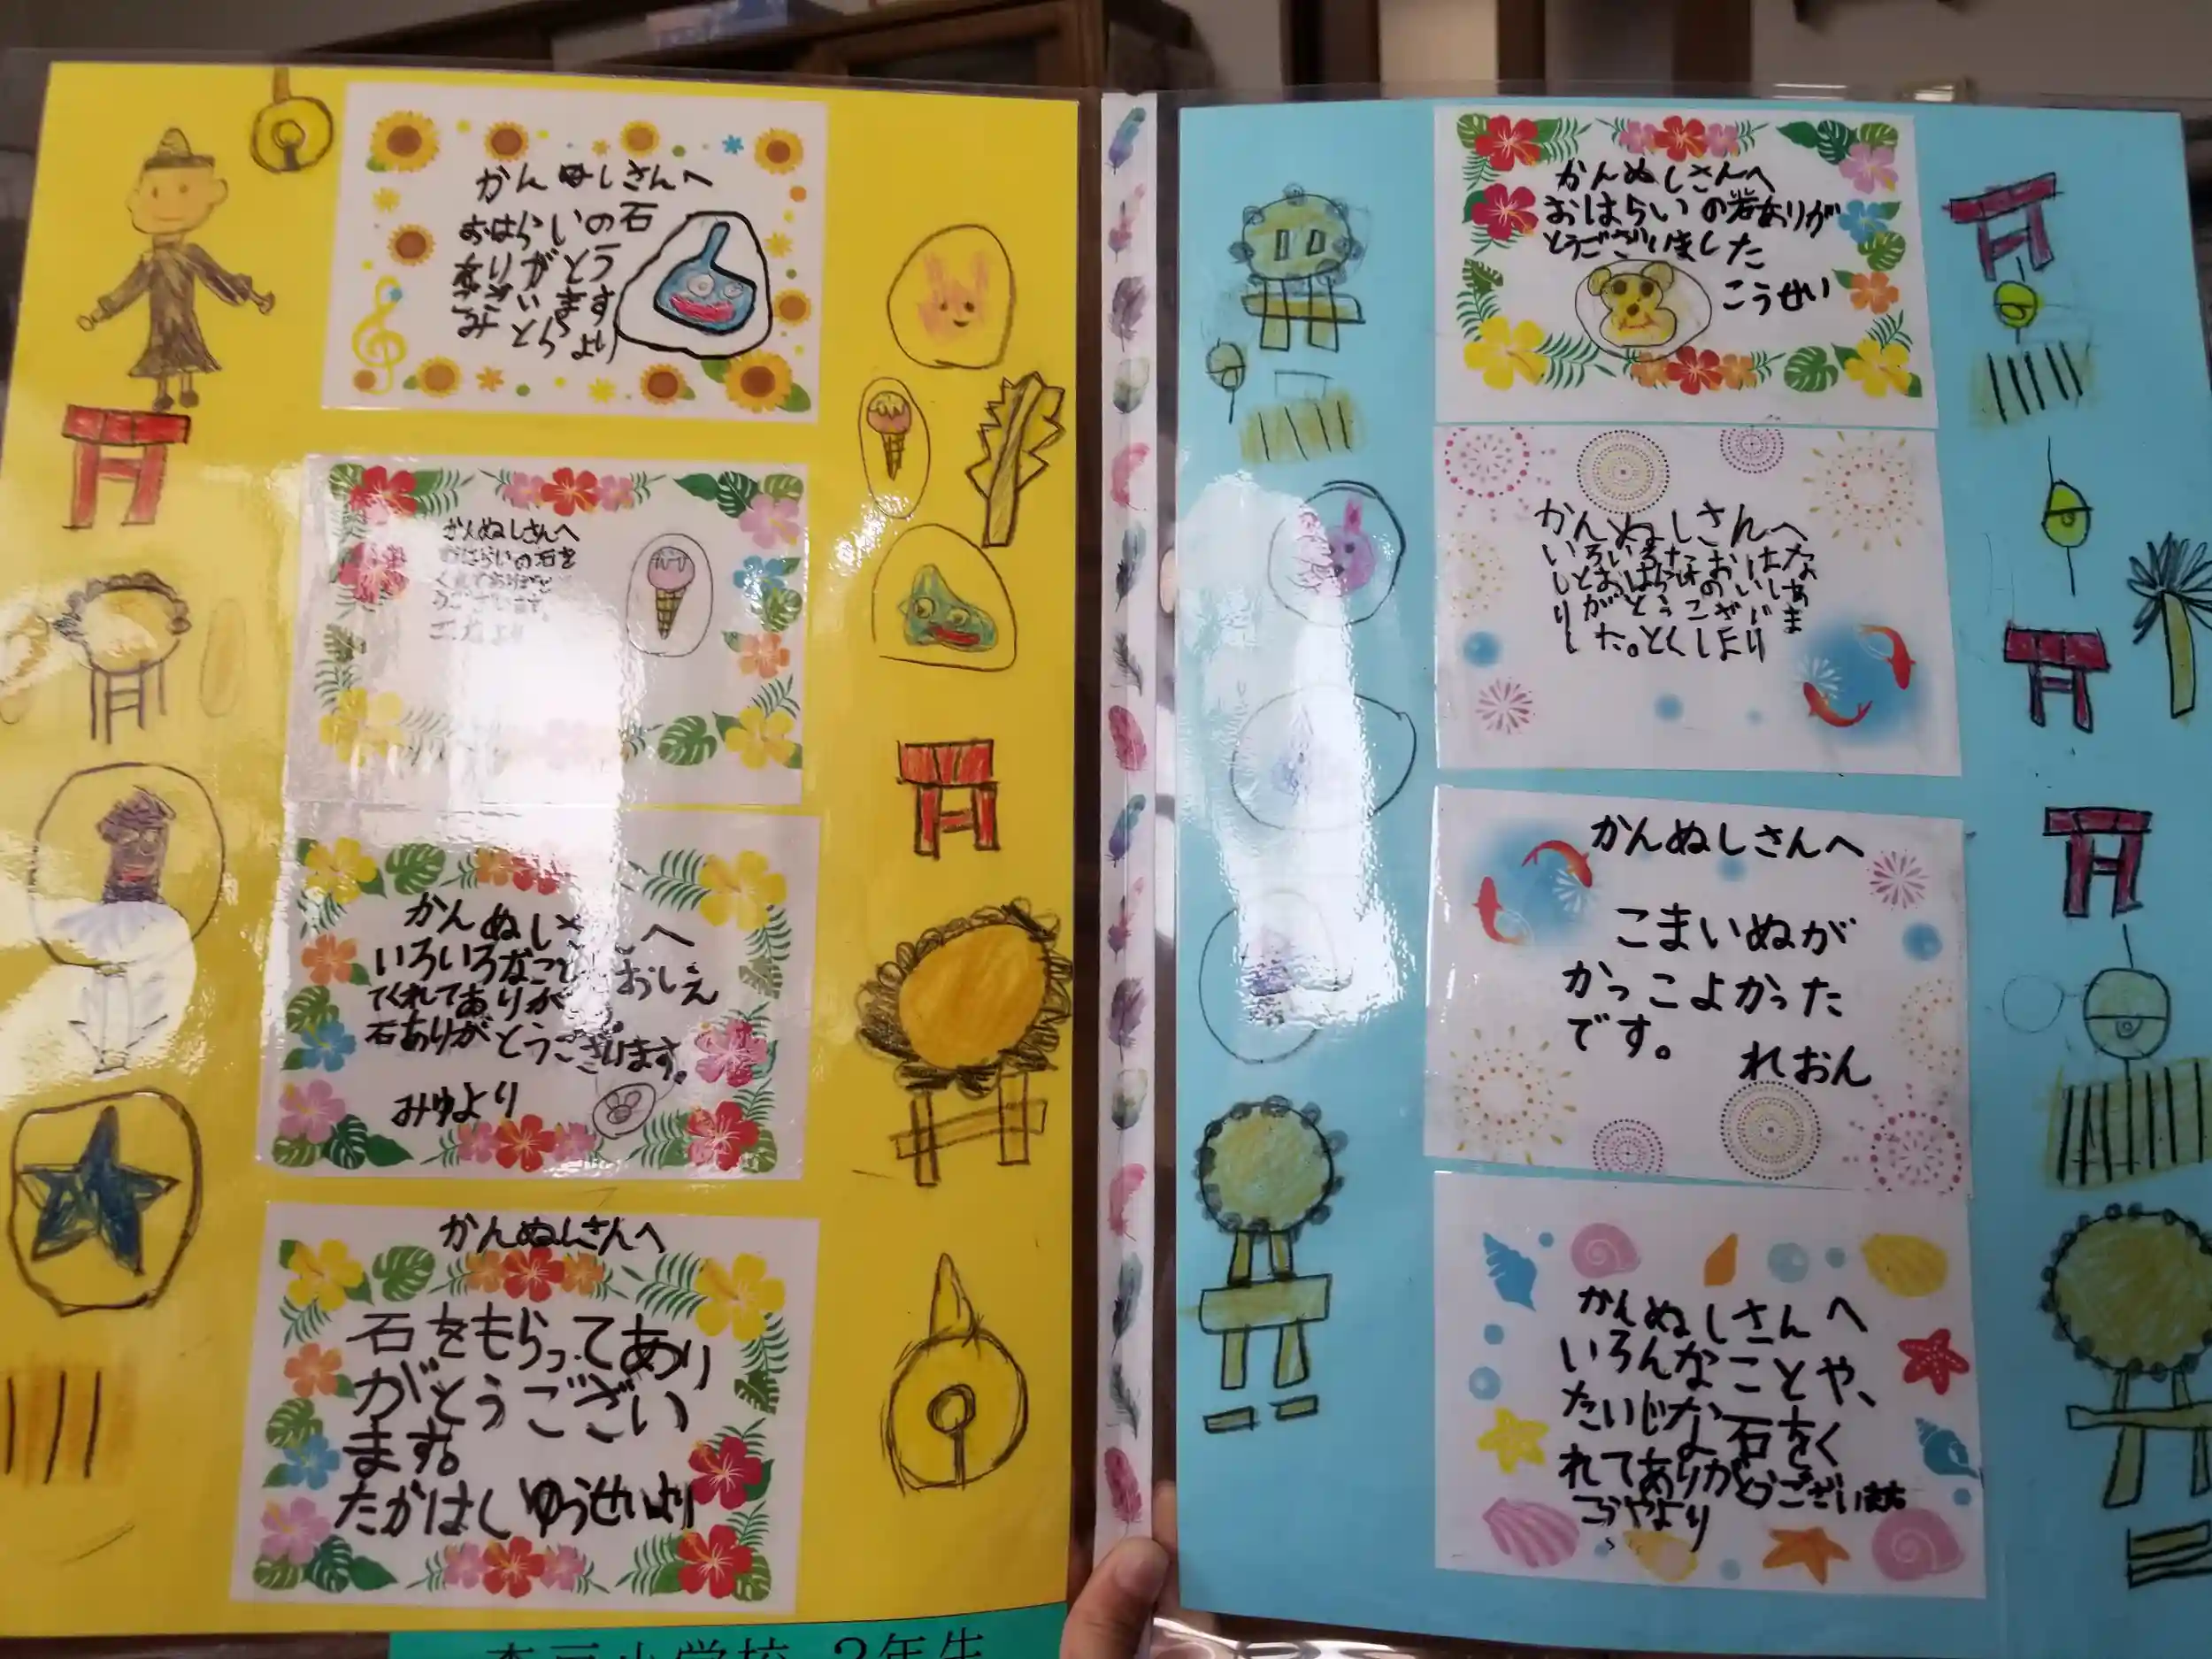 かんぬしさんへ
おはらいの石
ありがとう
ございます
みとらより
かんぬしさんへ
おはらいの石を
くれてありがと
うございます。
より
かんぬしさんへ
いろいろなこと おしえ
てくれてありが
石ありがとうございます。
みゆより
かんぬしさんへ
石をもらってあり
がとうござい
ます。
たかはし ゆうせいより
小学校 2年生
かんぬしさんへ
おはらいの岩ありが
とうございました
こうせい
かんぬしさんへ
いろいろなおはな
しとおはらいのいしあ
りがとうございま
した。とくしより
かんぬしさんへ
こまいぬが
かっこよかった
です。
れおん
かんぬしさんへ
いろんなことや、
たいじな石をく
れてありがとうございます
うやより